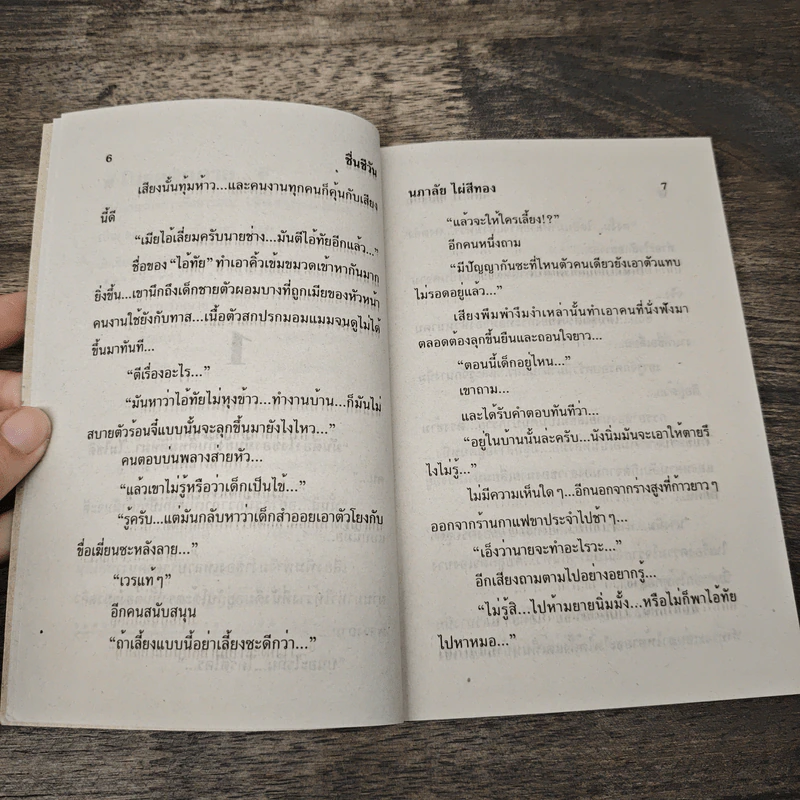 6
ชื่นชีวัน
เสียงนั้นทุ้มห้าว...และคนงานทุกคนก็คุ้นกับเสียง
นี้ดี
“เมียไอ้เลี่ยมครับนายช่าง...มันตีไอ้ทัยอีกแล้ว...”
ชื่อของ “ไอ้ทัย” ทำเอาคิ้วเข้มขมวดเข้าหากันมาก
ยิ่งขึ้น...เขานึกถึงเด็กชายตัวผอมบางที่ถูกเมียของหัวหน้า
คนงานใช้ยังกับทาส...เนื้อตัวสกปรกมอมแมมจนดูไม่ได้
ขึ้นมาทันที...
“ตีเรื่องอะไร...”
“มันหาว่าไอ้ทัยไม่หุงข้าว...ทำงานบ้าน...ก็มันไม่
สบายตัวร้อนจี๋แบบนั้นจะลุกขึ้นมายังไงไหว...”
คนตอบบ่นพลางส่ายหัว...
“แล้วเขาไม่รู้หรือว่าเด็กเป็นไข้...”
“รู้ครับ...แต่มันกลับหาว่าเด็กสำออยเอาตัวโยงกับ
ขื่อเฆี่ยนซะหลังลาย...”
“เวรแท้ๆ”
อีกคนสนับสนุน
“ถ้าเลี้ยงแบบนี้อย่าเลี้ยงซะดีกว่า...”
นภาลัย ไผ่สีทอง
7
“แล้วจะให้ใครเลี้ยง!?”
อีกคนหนึ่งถาม
“มีปัญญากันซะที่ไหนตัวคนเดียวยังเอาตัวแทบ
ไม่รอดอยู่แล้ว...”
เสียงพึมพำงึมงำเหล่านั้นทำเอาคนที่นั่งฟังมา
ตลอดต้องลุกขึ้นยืนและถอนใจยาว...
“ตอนนี้เด็กอยู่ไหน...”
เขาถาม...
และได้รับคำตอบทันทีว่า...
“อยู่ในบ้านนั้นล่ะครับ...นังนิ่มมันจะเอาให้ตายรึ
ไงไม่รู้...”
ไม่มีความเห็นใดๆ...อีกนอกจากร่างสูงที่ก้าวยาวๆ
ออกจากร้านกาแฟขาประจำไปช้าๆ...
“เอ็งว่านายจะทำอะไรวะ...”
อีกเสียงถามตามไปอย่างอยากรู้...
“ไม่รู้สิ...ไปห้ามยายนิ่มมั้ง...หรือไม่ก็พาไอ้ทัย
ไปหาหมอ...”